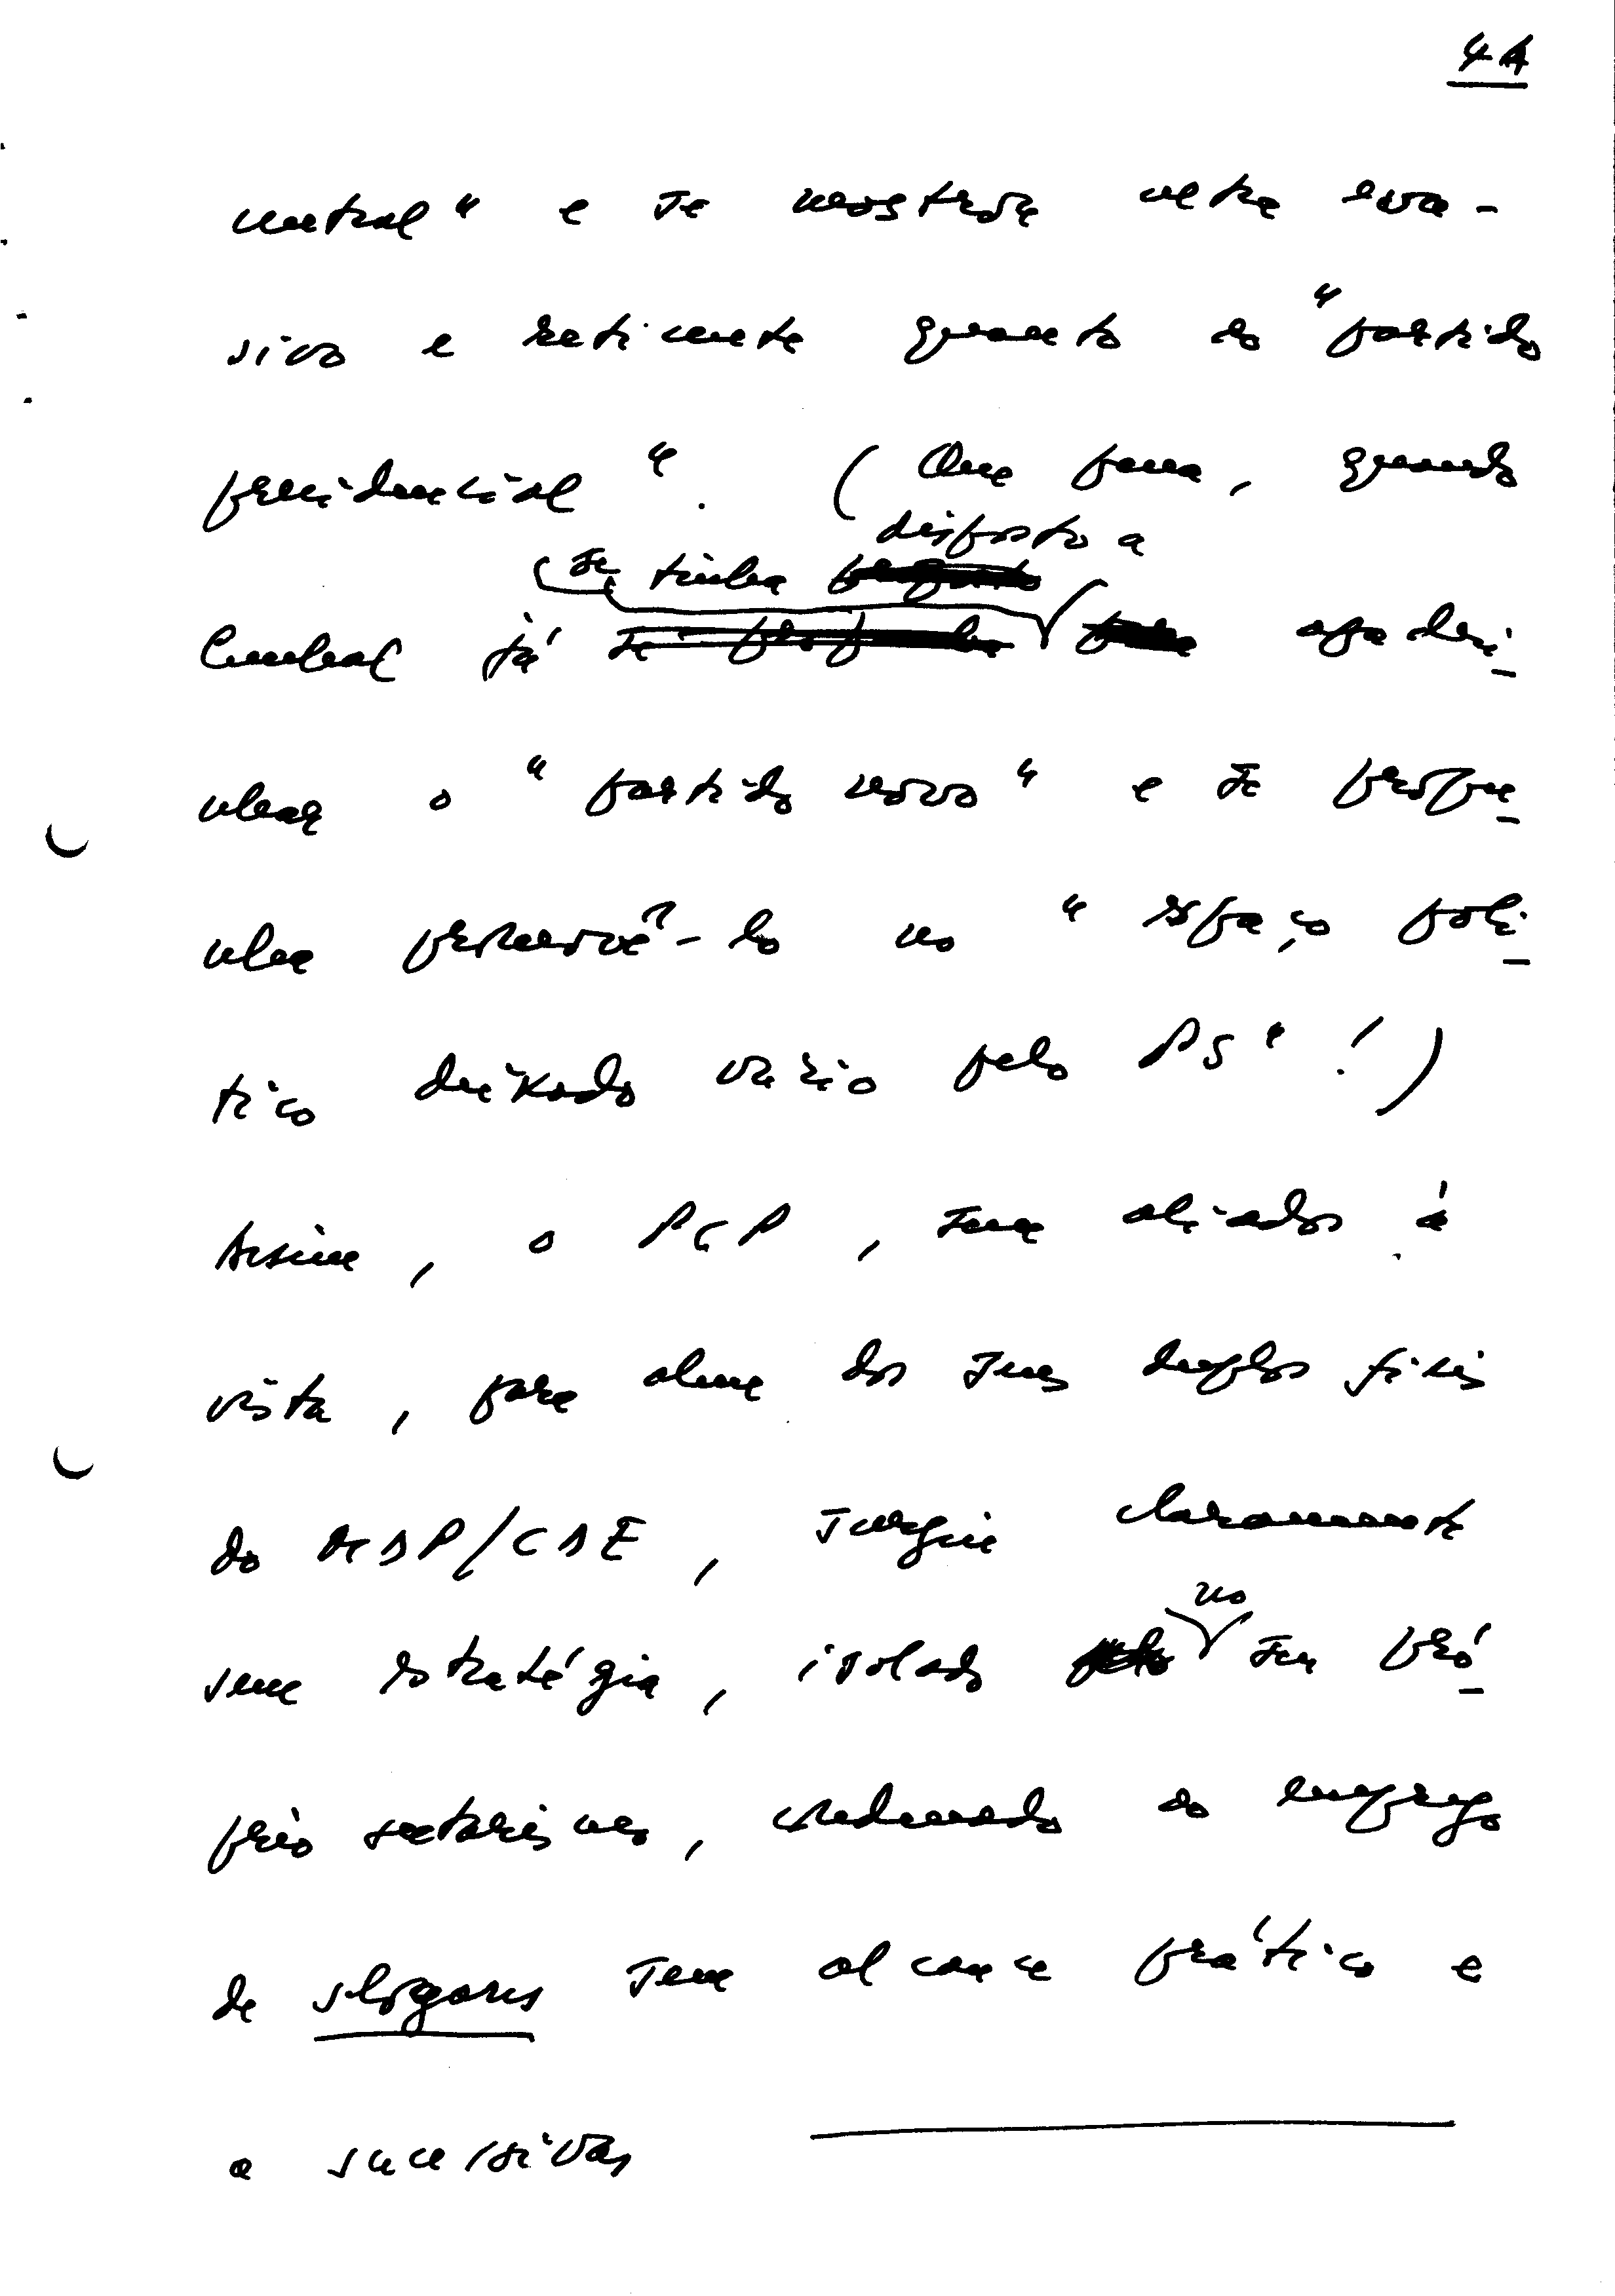 4A
central" e se mostrou ultra eva-
sivo e reticente quanto ao "partido
presidencial". (Que pena, quando
disposto a
se tinha
Cunhal já apadri-
nhar o "partido novo" e se propu-
nha preservá-lo no "espaço polí-
tico deixado vazio pelo PS"!)
Assim, o PCP, sem aliados à
vista, para além dos seus duplos fiéis
do MDP/CDE, surgiu claramente
sem estratégia, isolado
no
seu pró-
prio sectarismo, condenado ao emprego
de slogans sem alcance prático e
a sucessivas